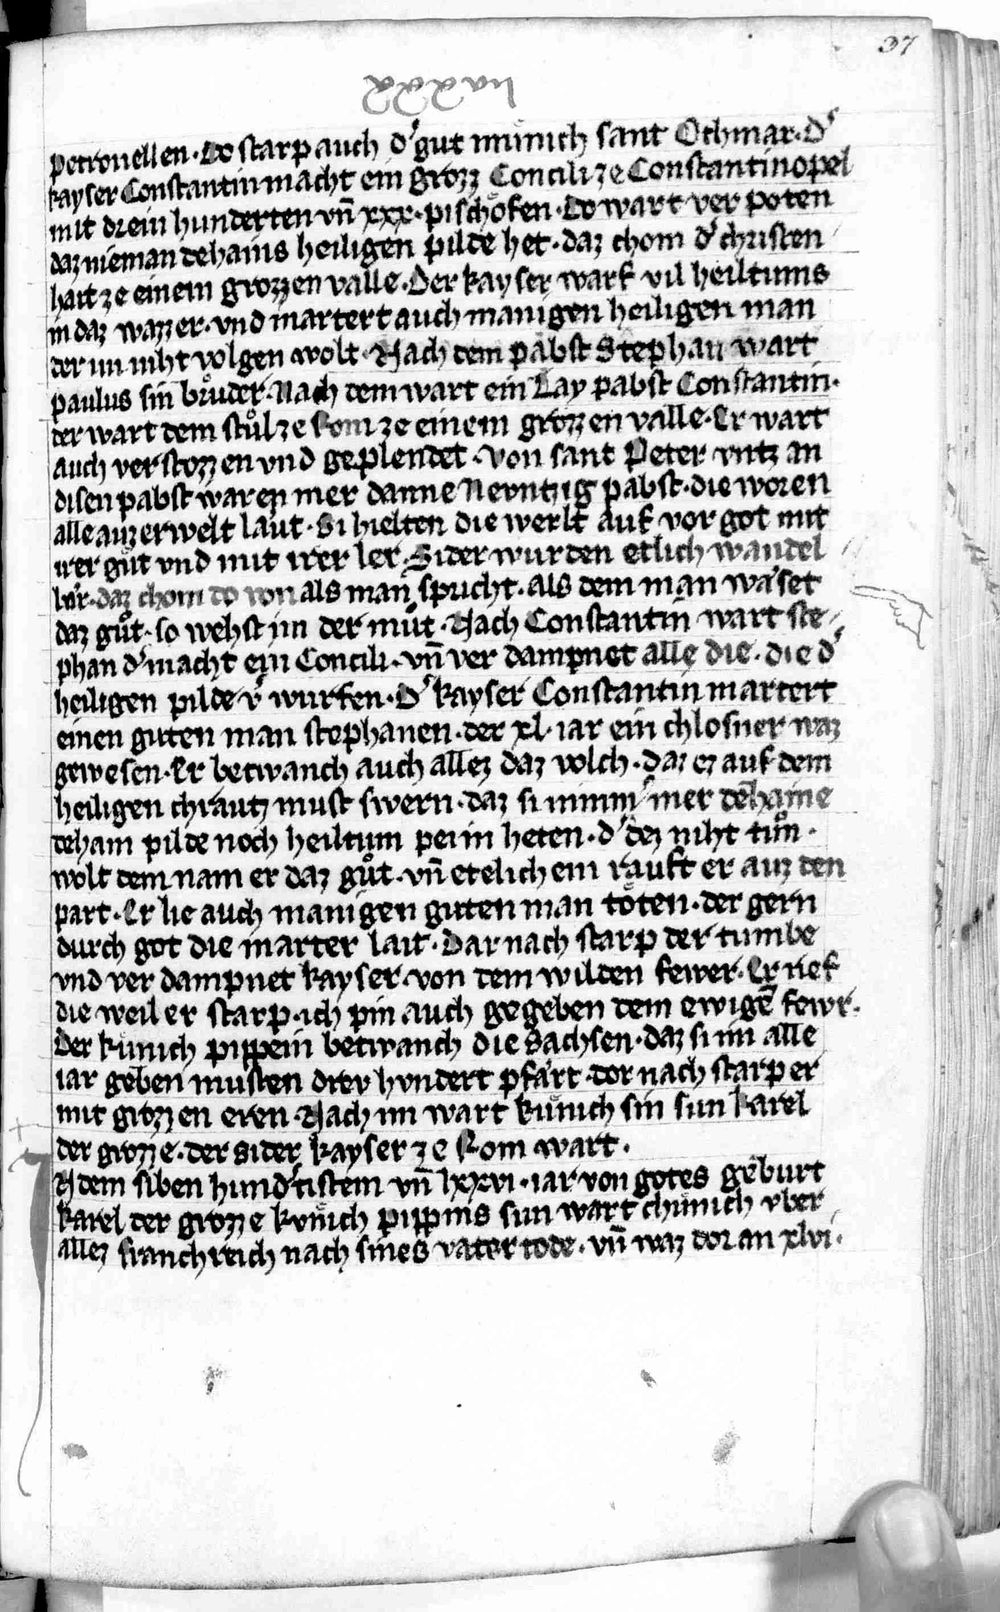 37
xxxvii
petronellen · Do starp auch dˢ gut münich sant Othmar · Dˢ
kayser Constantin macht ein grozz Concili ze Constantinopel
mit drein hunderten vn̄ xxx · pischofen · Do wart ver poten
daz nieman dehains heiligen pilde het · daz chom dˢ christen
hait ze einem grozzen valle · Der kayser warf vil heiltums
in daz wazzer · vnd martert auch manigen heiligen man
der im niht volgen wolt · Nach dem pabst Stephan wart
paulus sin brůder · Nach dem wart ein Lay pabst Constantin ·
der wart dem stůl ze Rom ze einem grozzen valle · Er wart
auch verstozzen vnd geplendet · von sant Peter vntz an
disen pabst waren mer danne Nevntzig pabst · die woren
alle auz erwelt laut · Si hielten die werlt auf vor got mit
irer gůt vnd mit irer ler · Sider wurden etlich wandel
bår · daz chom do von als man spricht · als dem man wåset
daz gůt · so wehst im der můt · Nach Constantin wart ste⸗
phan dˢ macht ein Concili · vn̄ ver dampnet alle die · die dˢ
heiligen pilde vˢ wurfen · Dˢ kayser Constantin martert
einen guten man stephanen · der xl · iar ein chlosner waz
gewesen · Er betwanch auch allez daz volch · daz ez auf dem
heiligen chrautz must swern · daz si nimmˢ mer dehaine
deham pilde noch heiltum pei in heten · dˢ dez niht tůn ·
wolt dem nam er daz gůt · vn̄ etelichem rauft er auz den
part · Er lie auch manigen guten man töten · der gern
durch got die marter lait · Dar nach starp der tumbe
vnd ver dampnet kayser · von dem wilden fewer · Er rief
die weil er starp · ich pin auch gegeben dem ewigē fewr ·
Der künich pippein betwanch die Sachsen · daz si im alle
iar geben musten drev hvndert pfårt · dor nach starp er
mit grozzen eren · Nach im wart künich sin sun karel
der grozze · der sider kayser ze Rom wart ·
N dem siben hundˢtistem vn̄ lxxvi · iar von gotes geburt
karel der grozze kvnich pippins sun wart chünich vber
allez franchreich nach sines vater tode · vn̄ waz dor an xlvi ·